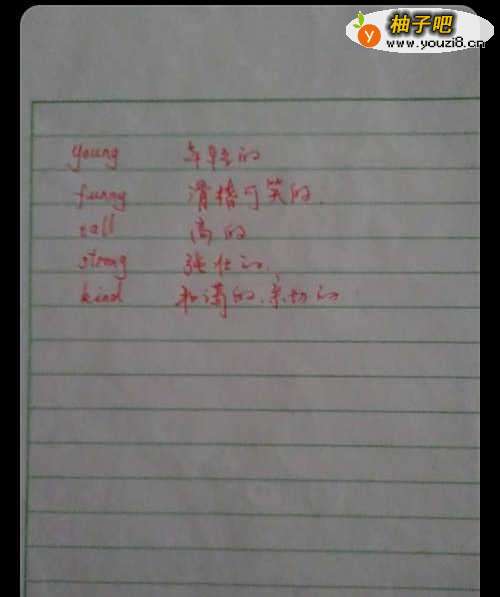 柚子吧
www.youzi8.cn
young 年轻的
funny 滑稽可笑的
tall 高的
strong 强壮的
kind 和蔼的、亲切的